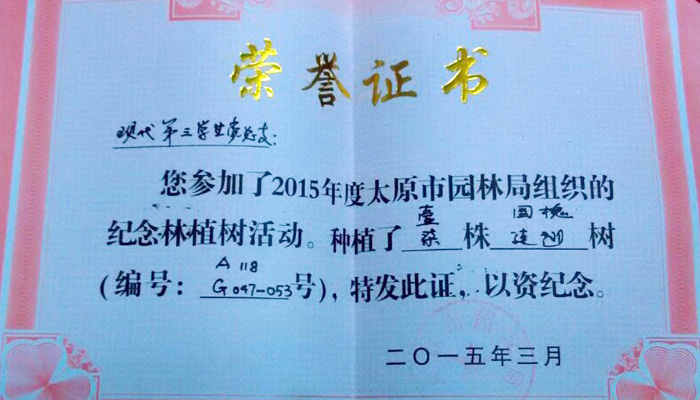 荣誉证书
现代第三学生党总支:
您参加了2015年度太原市园林局组织的
壹 国槐
纪念林植树活动。种植了 柒 株 连翘 树
A 118
(编号: G047-053 号),特发此证,以资纪念。
二〇一五年三月